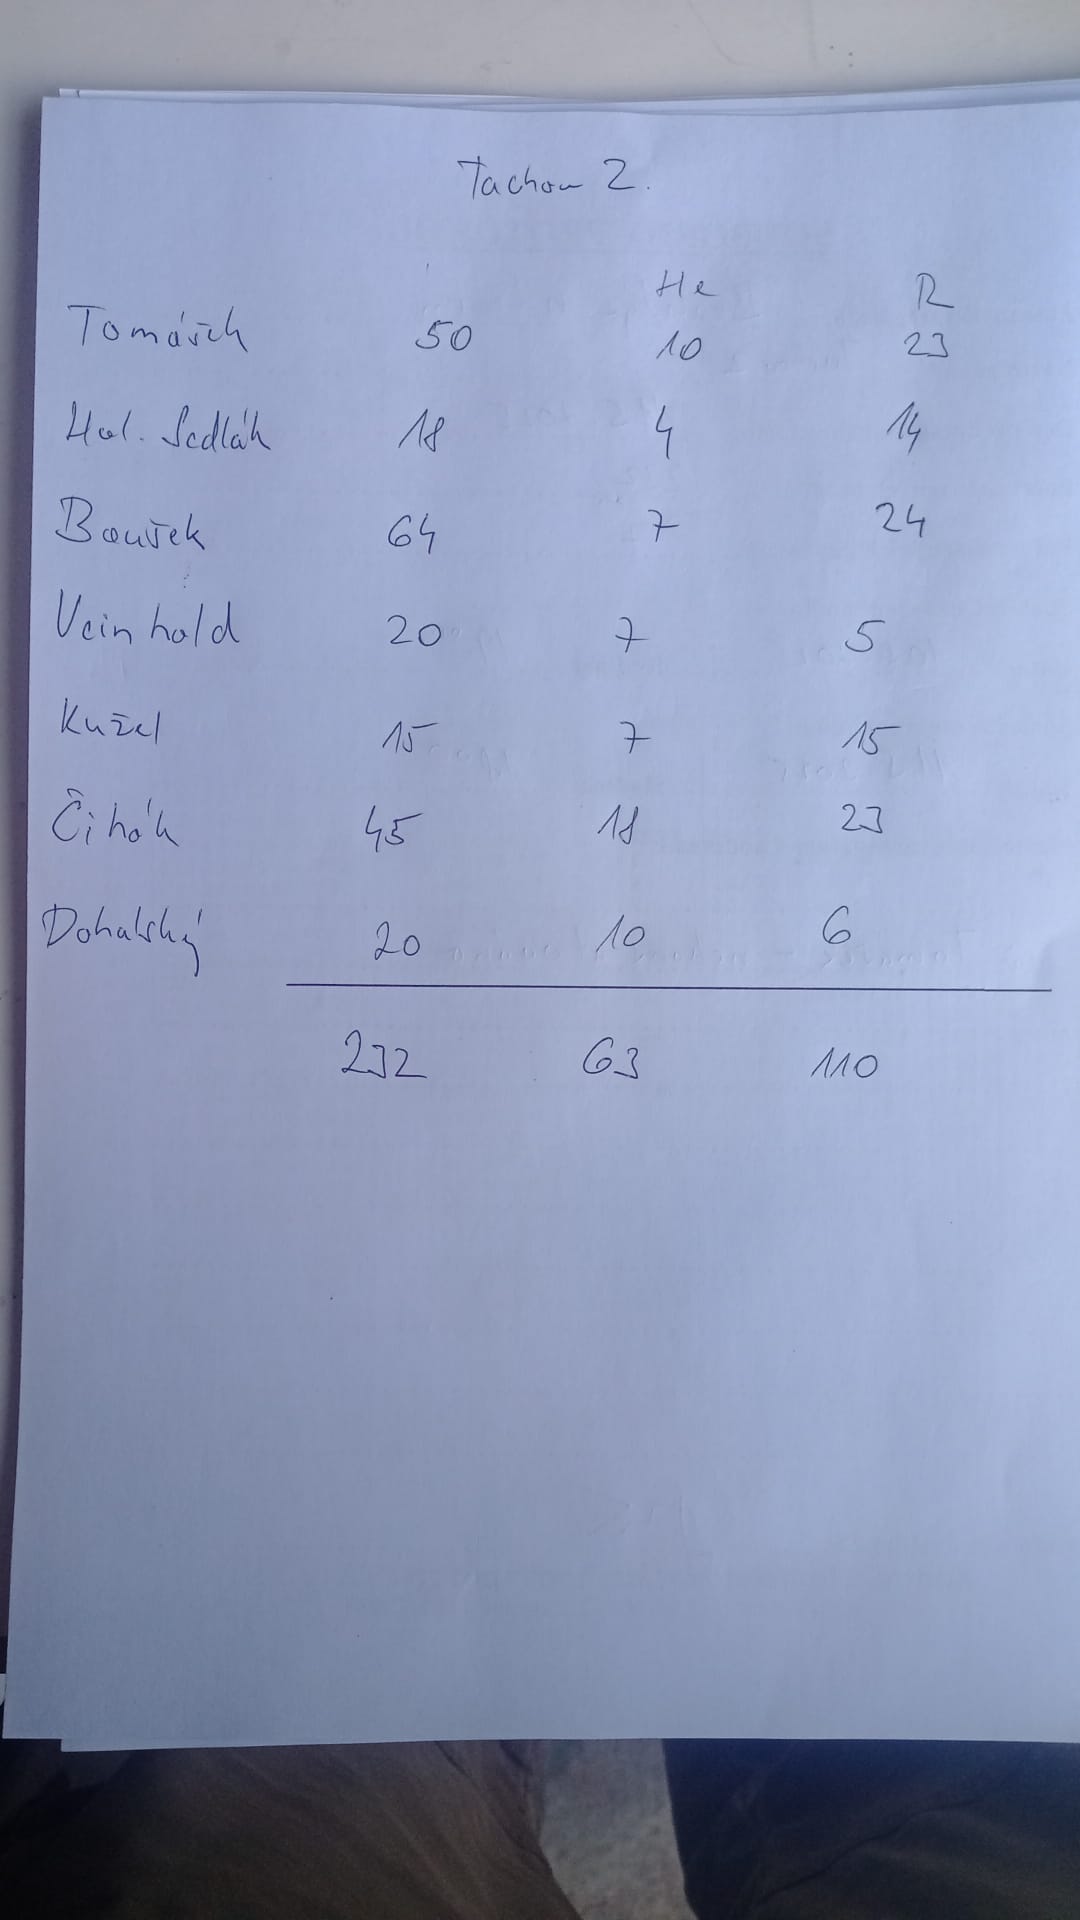 Tachov 2.
He R
Tomášek 50 10 23
Hol. Sedlák 18 4 14
Bouřek 64 7 24
Veinhold 20 7 5
Kužel 15 7 15
Čihák 45 18 23
Dohalský 20 10 6
232 63 110